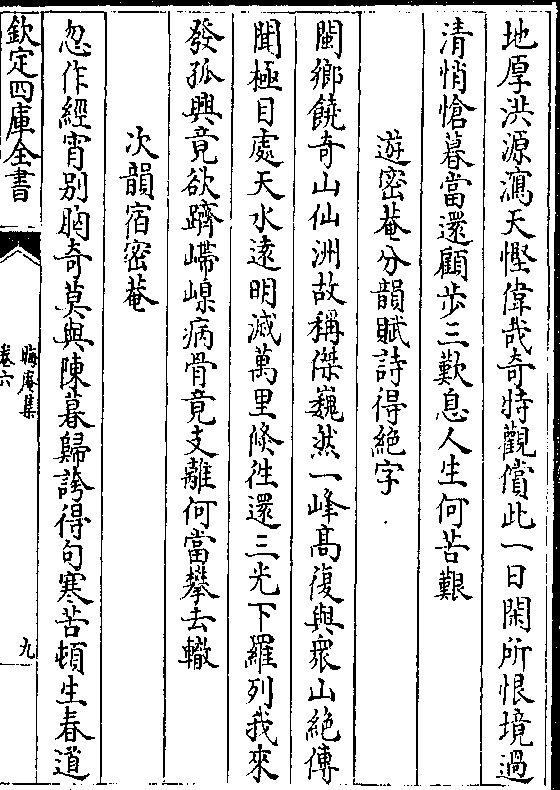 地厚洪源瀉天慳偉哉奇特觀償此一日閑所恨境過
清悄愴暮當還顧步三歎息人生何苦艱
遊密菴分韻賦詩得絕字
閩鄉饒奇山仙洲故稱傑巍然一峰高復與衆山絕傳
聞極目處天水遠明滅萬里倐徃還三光下羅列我來
發孤興竟欲躋嵽嵲病骨竟支離何當攀去轍
次韻宿密菴
忽作經宵別胸奇莫與陳暮歸誇得句寒苦頓生春道
欽定四庫全書
晦庵集
卷六
九